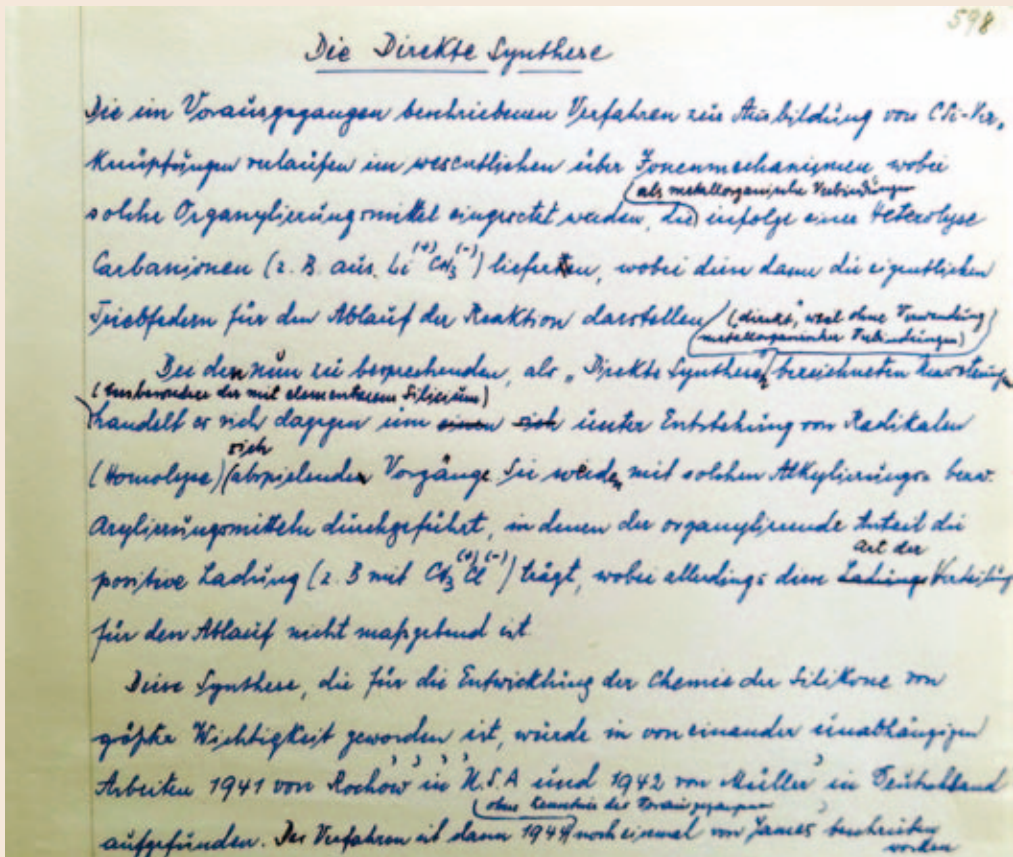 598
Die Direkte Synthese
Die im Vorausgegangen beschriebenen Verfahren zur Ausbildung von CSi-Ver-
knüpfungen verlaufen im wesentlichen über Jonenmechanismen, wobei
(als metallorganische Verbindungen
solche Organylierungsmittel eingesetzt werden, die infolge einer Heterolyse
Carbanionen (z. B. aus Li(+)CH₃(-)) lieferten, wobei diese dann die eigentlichen
Triebfedern für den Ablauf der Reaktion darstellen
("direkt", weil ohne Verwendung
metallorganischer Verbindungen)
Bei den nun zu besprechenden, als „Direkte Synthese" bezeichneten
(insbesondere der mit elementarem Silicium)
handelt es sich dagegen um einen sich unter Entstehung von Radikalen
sich
(Homolyse) abspielenden Vorgänge. Sie werden mit solchen Alkylierungs- bezw.
Arylierungsmitteln durchgeführt, in denen der organylierende Anteil die
Art der
positive Ladung (z. B mit CH₃(+)Cl(-)) trägt, wobei allerdings diese Ladungs Verteilung
für den Ablauf nicht maßgebend ist.
Diese Synthese, die für die Entwicklung der Chemie der Silikone von
größter Wichtigkeit geworden ist, wurde in von einander unabhängigen
Arbeiten 1941 von Rochow in U.S.A und 1942 von Müller in Deutschland
(ohne Kenntnis des Vorausgegangen
aufgefunden. Das Verfahren ist dann 1944 noch einmal von James beschrieben
worden